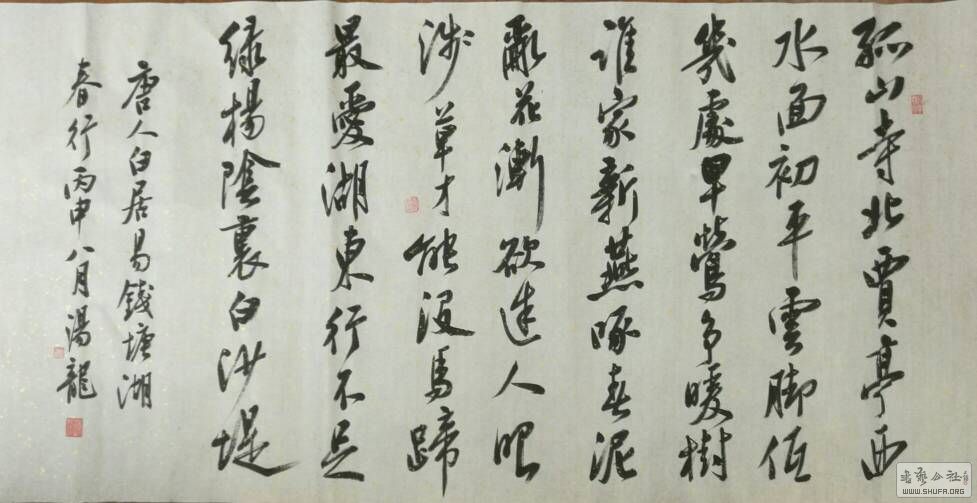 孤山寺北賈亭西
水面初平雲脚低
幾處早鶯争暖樹
誰家新燕啄春泥
亂花漸欲迷人眼
浅草才能没馬蹄
最愛湖東行不足
绿楊陰裏白沙堤
唐人白居易錢塘湖
春行丙申八月湯龍
书艺公社
WWW.SHUFA.ORG